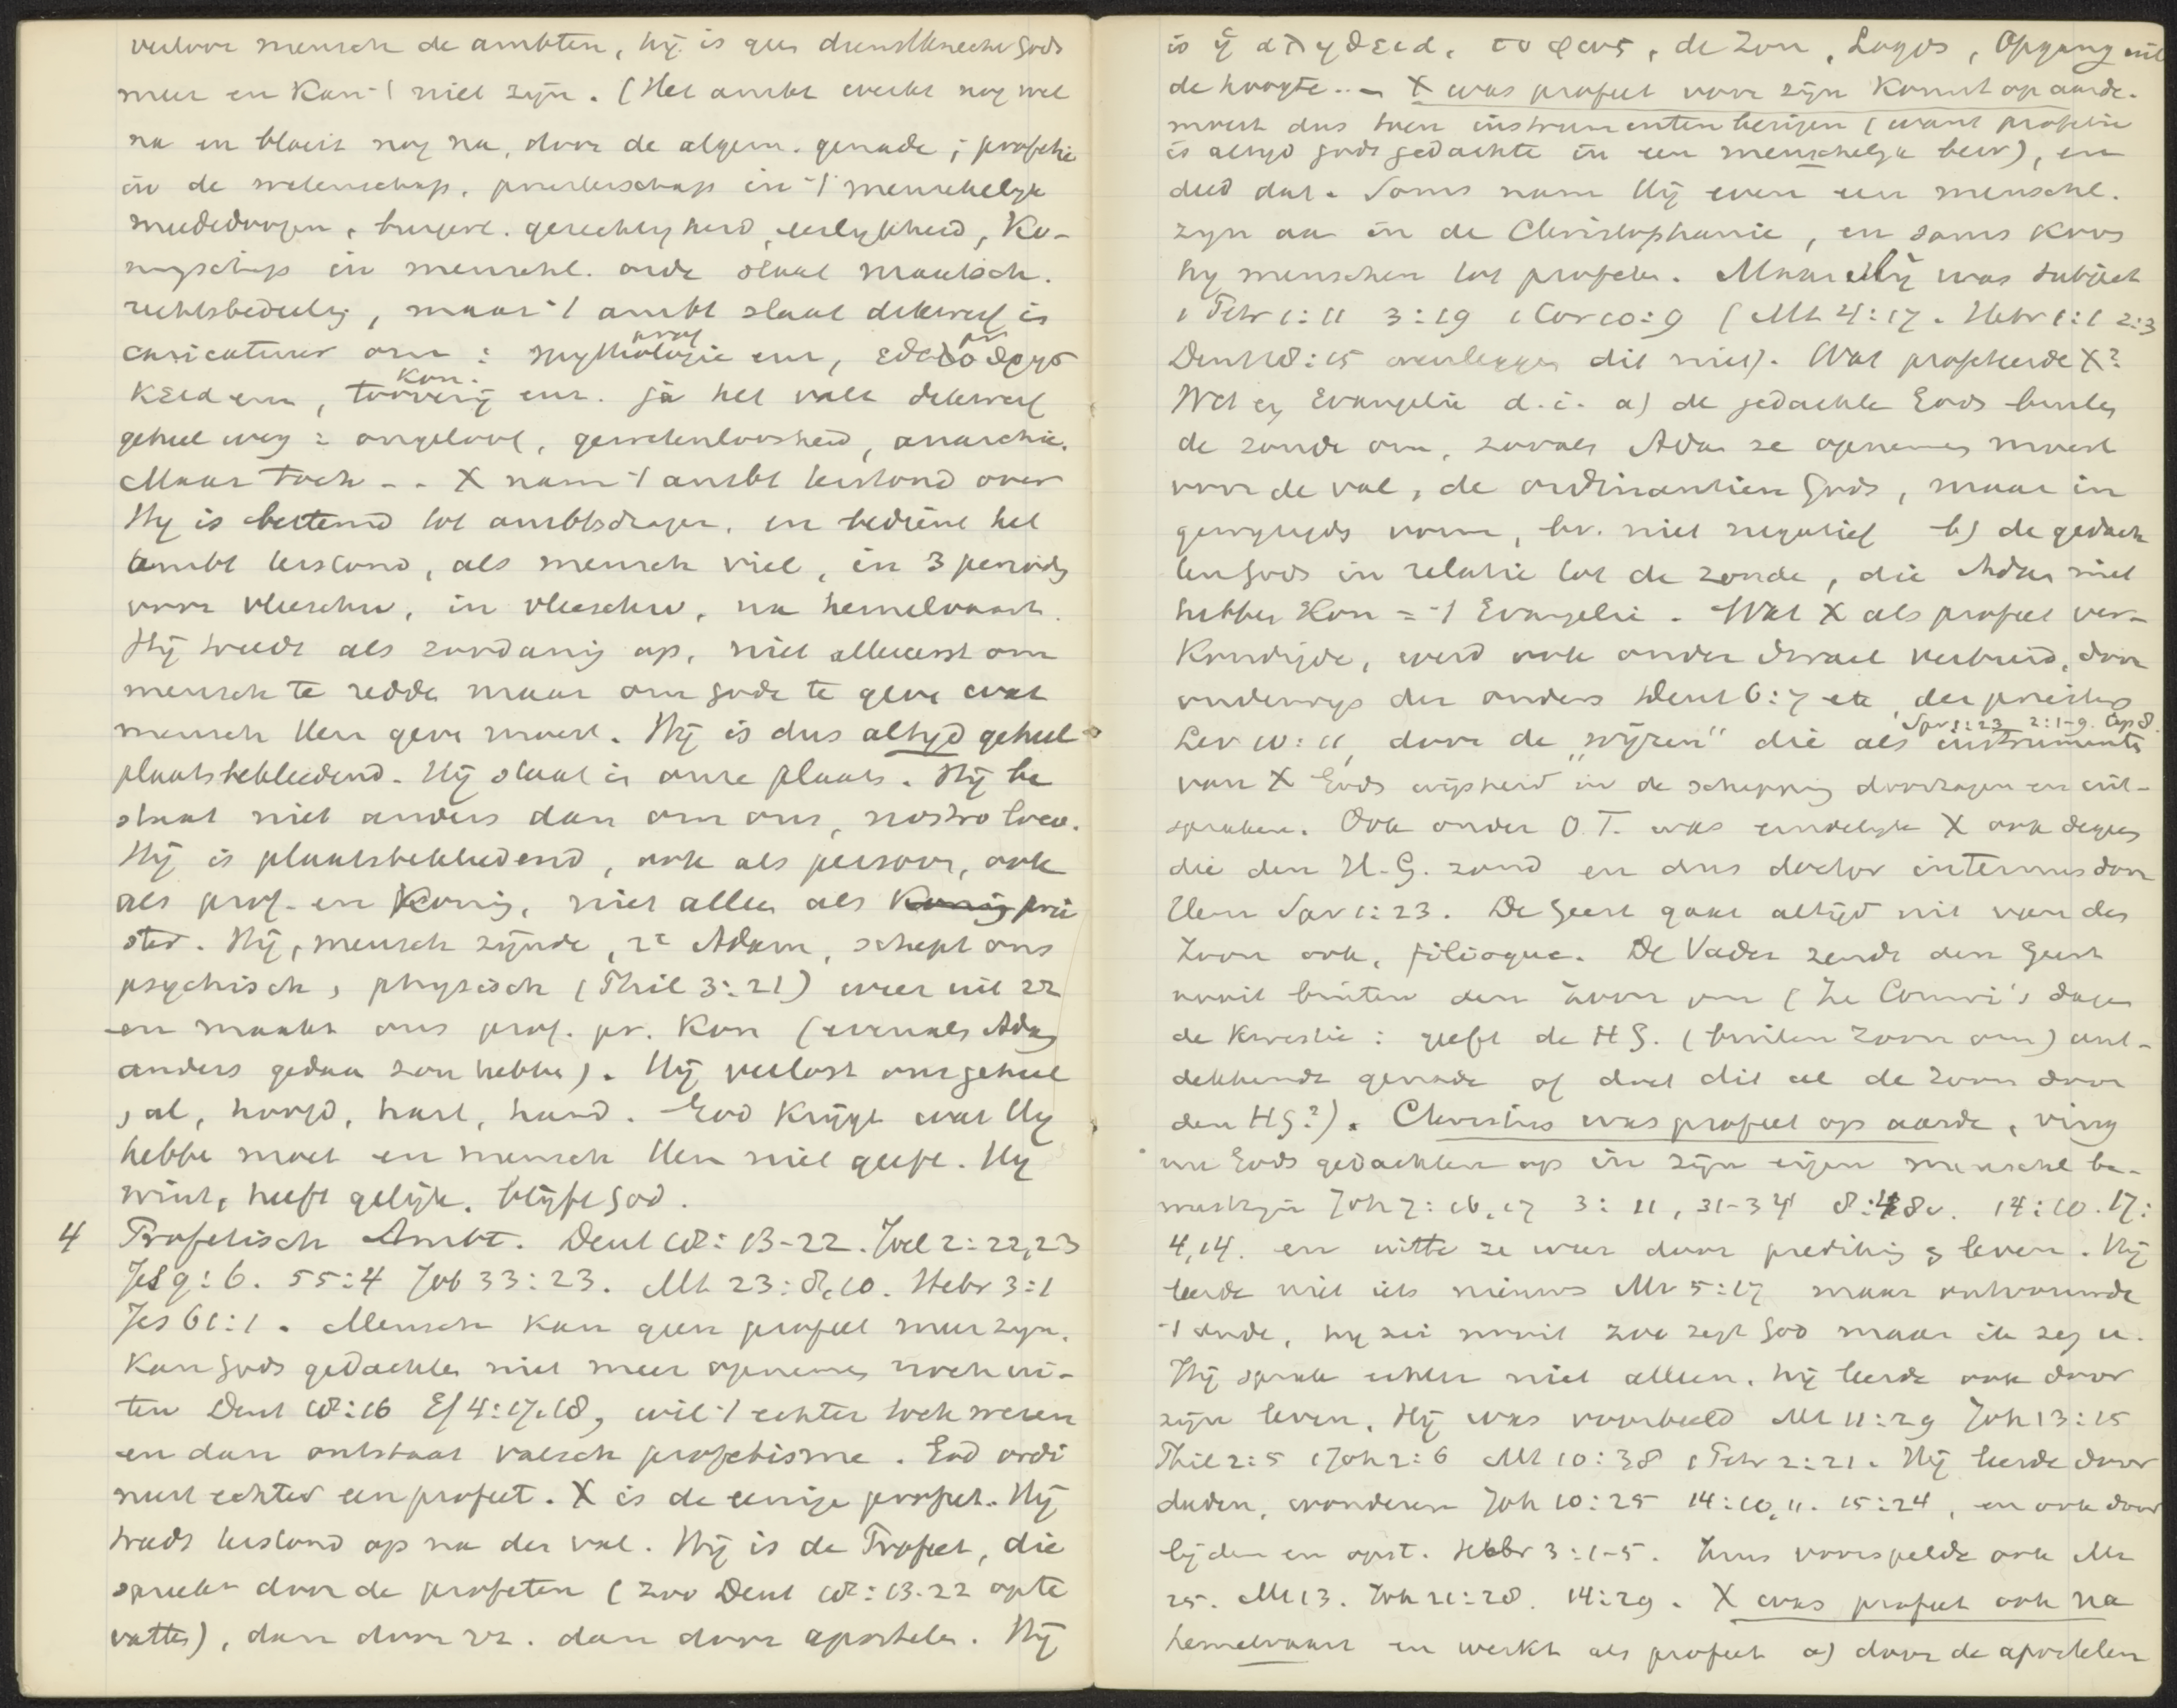 verloor mensch de ambten, hij is geen dienstknecht Gods
meer en kan 't niet zijn. (Het ambt werkt nog wel
na en bloeit nog na, door de algem. genade; profetie
in de wetenschap, priesterschap in 't menschelijk
mededoogen, burgerl. gerechtigheid, eerlijkheid, Ko-
ningschap in menschl. orde staat maatsch.
rechtsbedeeling, maar 't ambt slaat dikwerf in
caricatuur om: mythologie prof enz,
kon. toverij enz. ja het valt dikwerf
geheel weg: ongeloof, gewetenloosheid, anarchie.
Maar toch -- X nam 't ambt terstond over
Hij is bestemd tot ambtsdrager, en bedient het
ambt terstond, als mensch viel, in 3 perioden
voor vleeschw, in vleeschw, na hemelvaart.
Hij treedt als zoodanig op, niet allereerst om
mensch te redden maar om Gode te geven wat
mensch Hem geven moest. Hij is dus altijd geheel
plaatsbekleedend. Hij staat in onze plaats. Hij be
staat niet anders dan om ons, nostro loco.
Hij is plaatsbekleedend, ook als persoon, ook
als prof. en Koning, niet alleen als Koning prie
ster. Hij, mensch zijnde, 2e Adam, schept ons
psychisch, physisch (Phil 3:21) weer uit
en maakt ons prof. pr. Kon (evenals Adam
anders gedaan zou hebben). Hij verlost ons geheel
al, hoofd, hart, hand. God krijgt wat Hij
hebben moet en mensch Hem niet geeft. Hij
wint, heeft gelijk, blijft God.
4 Profetisch Ambt. Deut 18:13-22. Joel 2:22,23
Jes 9:6. 55:4 Job 33:23. Mt 23:8,10. Hebr 3:1
Jes 61:1. Mensch kan geen profeet meer zijn,
kan Gods gedachten niet meer opnemen noch ui-
ten Deut 18:16 Ef 4:17,18, wil 't echter toch wezen
en dan ontstaat valsch profetisme. God ordi
neert echter een profeet. X is de eenige profeet. Hij
treedt terstond op na den val. Hij is de Profeet, die
spreekt door de profeten (zoo Deut 18:13-22 opte
vatten), dan door zz. dan door apostelen. Hij
is ἡ ἀληθεια, το φως, de Zon, Logos, Opgang uit
de hoogte.. - X was profeet voor zijn komst op aarde.
moest dus toen instrumenten bezigen (want profetie
is altijd Gods gedachte in een menschelijk bew), en
deed dat. Soms nam Hij even een menschl.
zijn aan in de Christophanie, en soms koos
hij menschen tot profeten. Maar Hij was subject
1 Petr 1:11 3:19 1 Cor 10:9 (Mt 4:17. Hebr 1:1 2:3
Deut 18:15 weerleggen dit niet). Wat profeteerde X?
Wet en Evangelie d.i. a) de gedachte Gods buiten
de zonde om, zooals Adam ze opnemen moest
voor de val, de ordinantien Gods, maar in
gewijzigden vorm, bv. niet negatief b) de gedach
ten Gods in relatie tot de zonde, die Adam niet
hebben kon = 't Evangelie. Wat X als profeet ver-
kondigde, werd ook onder Israel verbreid, door
onderwijs der ouders Deut 6:7 etc, der priesters
Spr 1:23 2:1-9. Cap 8.
Lev 10:11, door de „wijzen" die als instrumenten
van X Gods wijsheid in de schepping doorzagen en uit-
spraken. Ook onder O.T. was eindelijk X ook degeen
die den H.G. zond en dus doctor internus door
Hem Spr 1:23. De Geest gaat altijd uit van den
Zoon ook, filioque. De Vader zendt den Geest
nooit buiten den Zoon om (in Comrie's dagen
de kwestie: geeft de H G. (buiten Zoon om) ont-
dekkende genade of doet dit al de Zoon door
den HG?). Christus was profeet op aarde, ving
nu Gods gedachten op in zijn eigen menschel be-
wustzijn Joh 7:16,17 3:11, 31-34 8:48v. 14:10. 17:
4,14. en uitte ze weer door prediking & leven. Hij
leerde niet iets nieuws Mt 5:17 maar ontvouwde
't oude, hij zei nooit zoo zegt God maar ik zeg u.
Hij sprak echter niet alleen, hij leerde ook door
zijn leven, Hij was voorbeeld Mt 11:29 Joh 13:15
Phil 2:5 1 Joh 2:6 Mt 10:38 1 Petr 2:21. Hij leerde door
daden, wonderen Joh 10:25 14:10,11. 15:24, en ook door
lijden en opst. Hebr 3:1-5. Jezus voorspelde ook Mt
25. Mt 13. Joh 21:28. 14:29. X was profeet ook na
hemelvaart en werkt als profeet a) door de apostelen